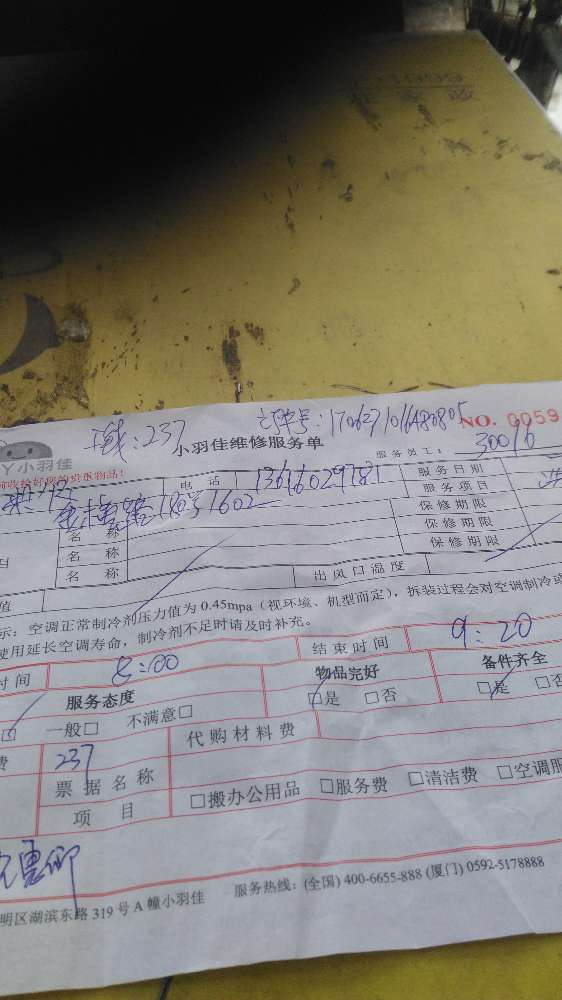 订单号：1706271016480805
NO. 0059
线：237
小羽佳维修服务单
服务员工：30016
丫小羽佳
前收拾好您的贵重物品！
电 话 13616029781
服务日期
180号1602
服务项目
名 称
保修期限
名 称
保修期限
名 称
保修期限
出风口温度
值
示：空调正常制冷剂压力值为 0.45mpa（视环境、机型而定），拆装过程会对空调制冷或
使用延长空调寿命，制冷剂不足时请及时补充。
时 间 8:00
结束时间 9:20
服务态度
物品完好
备件齐全
□ 一般□ 不满意□
□是 □否
□是 □否
费 237
代购材料费
票据名称
项 目
□搬办公用品 □服务费 □清洁费 □空调服
明区湖滨东路 319 号 A 幢小羽佳 服务热线：(全国) 400-6655-888 (厦门) 0592-5178888